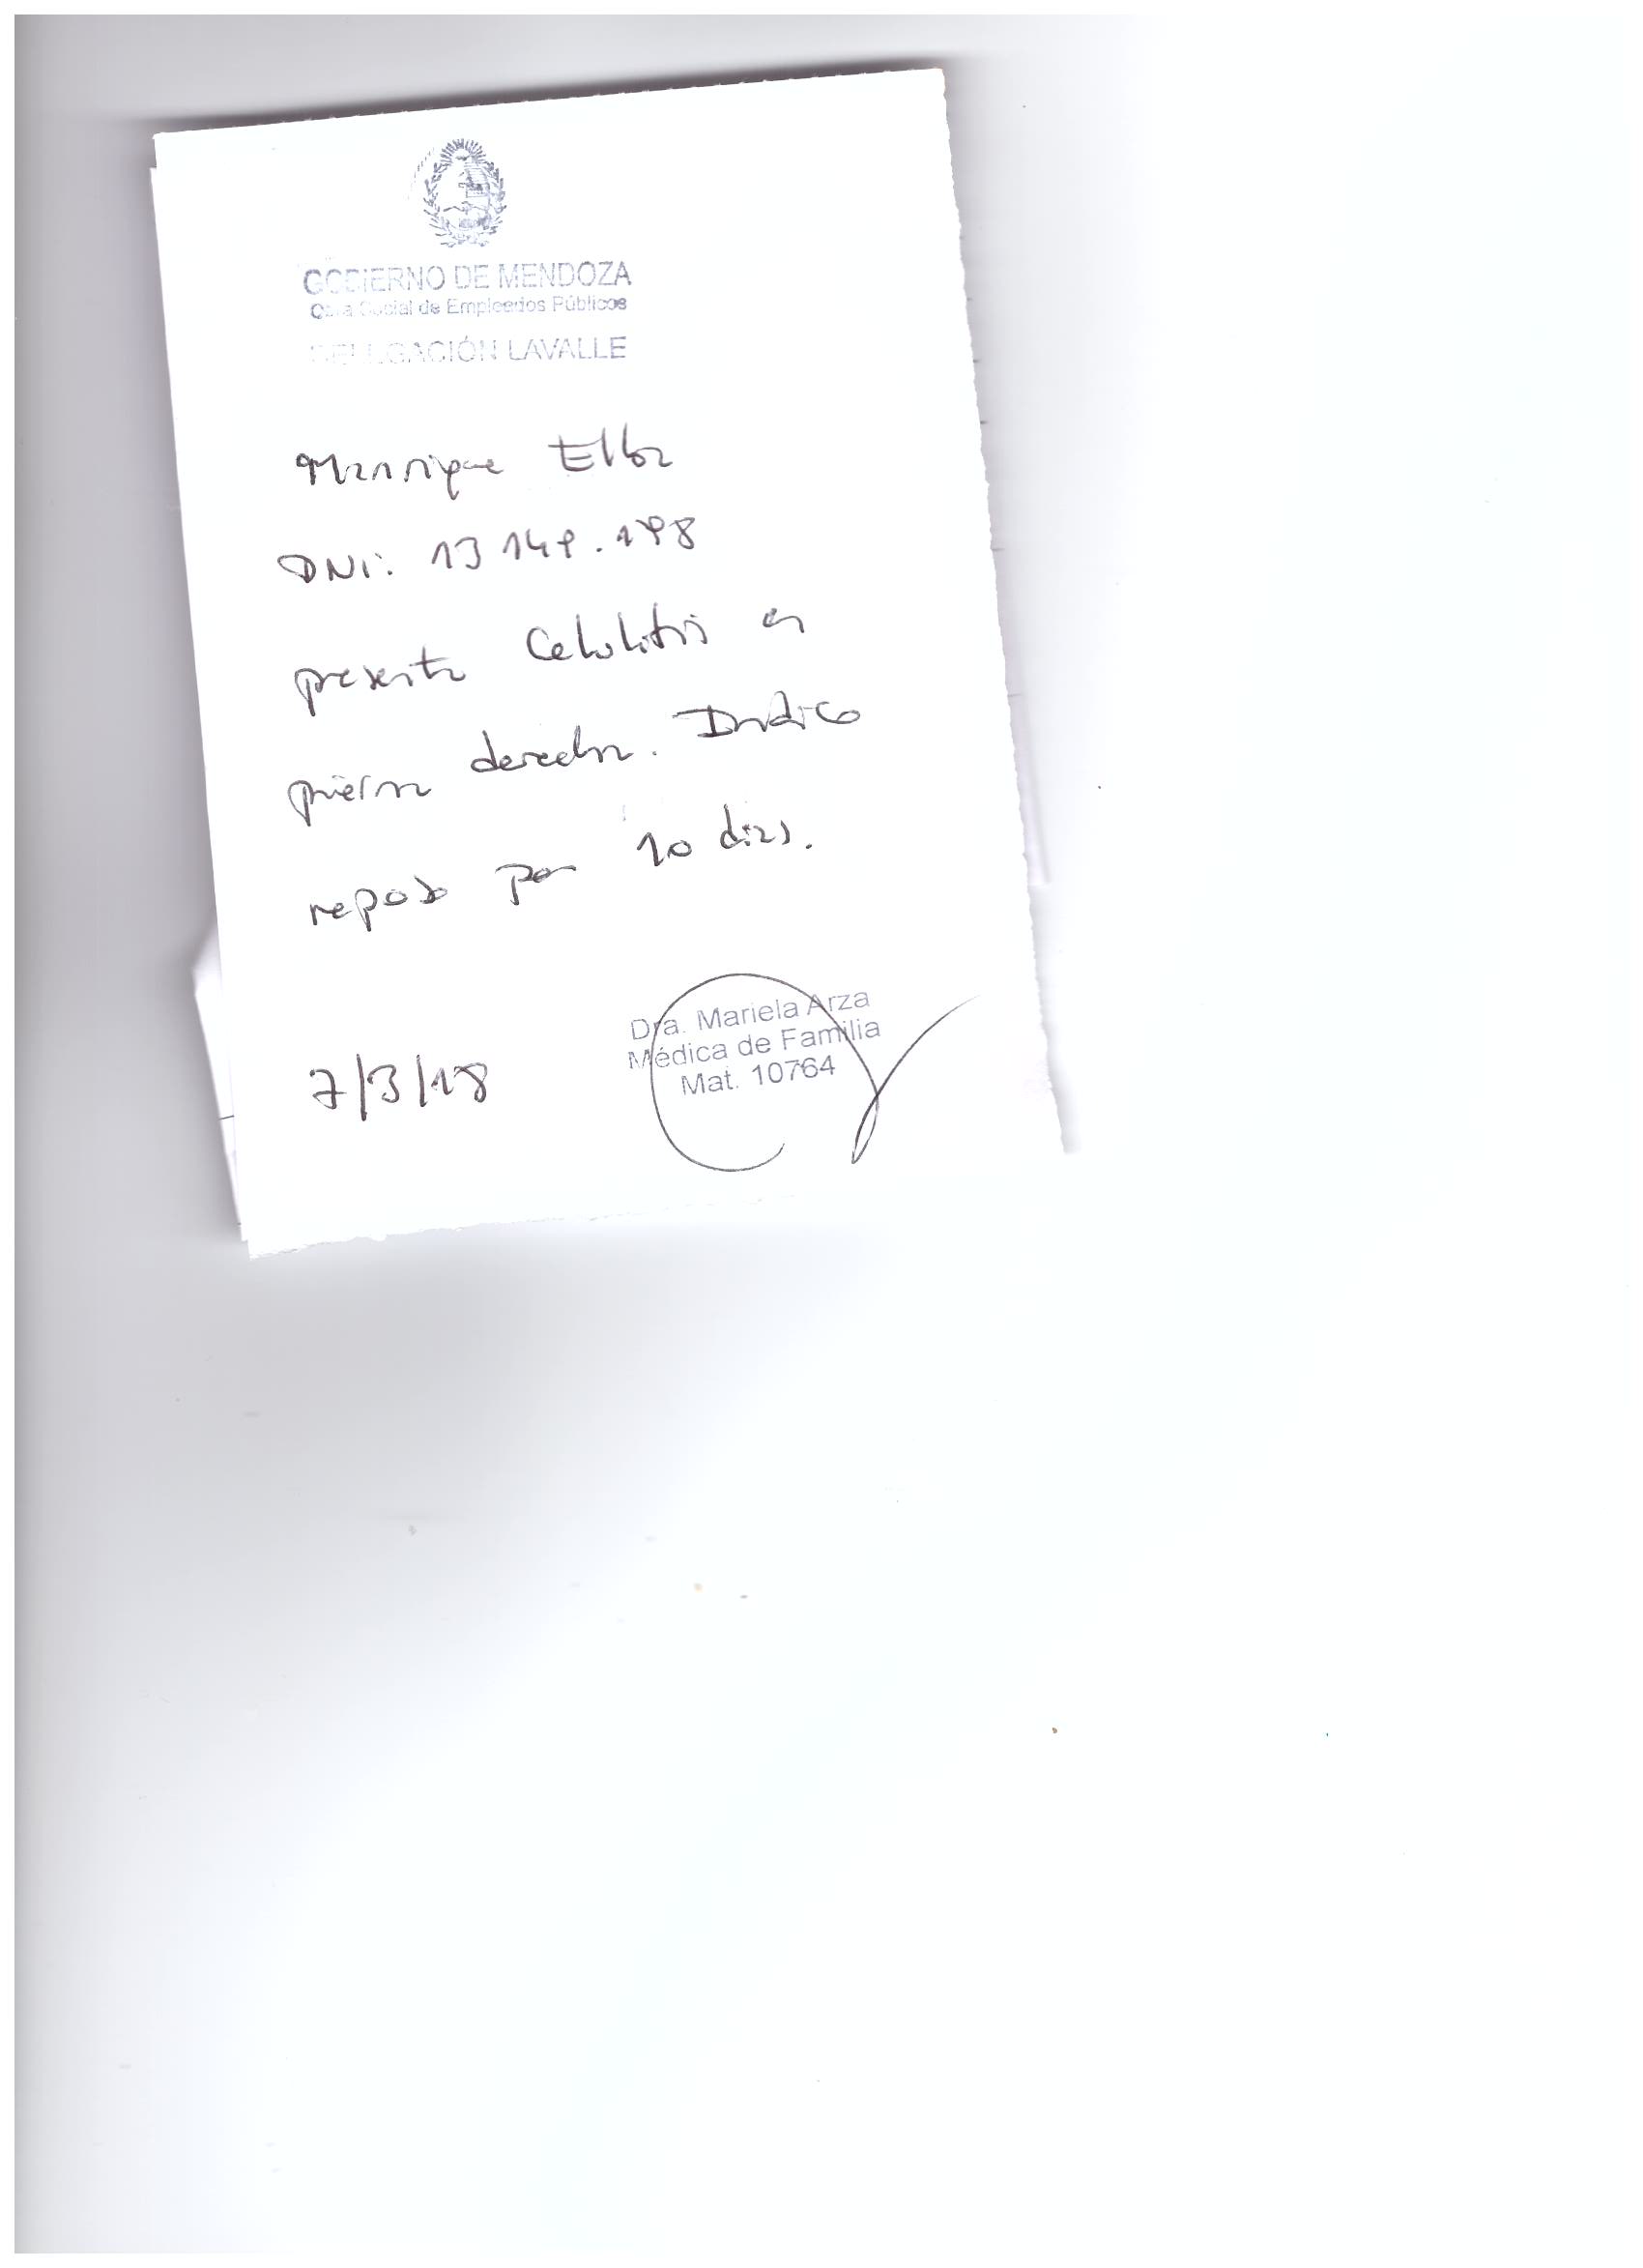 GOBIERNO DE MENDOZA
Obra Social de Empleados Públicos
DELEGACIÓN LAVALLE
Manrique
DNI: 13 149.198
presenta Celulitis en
pierna derecha. Indico
reposo por 10 dias.
Dra. Mariela Arza
Médica de Familia
Mat. 10764
7/3/18